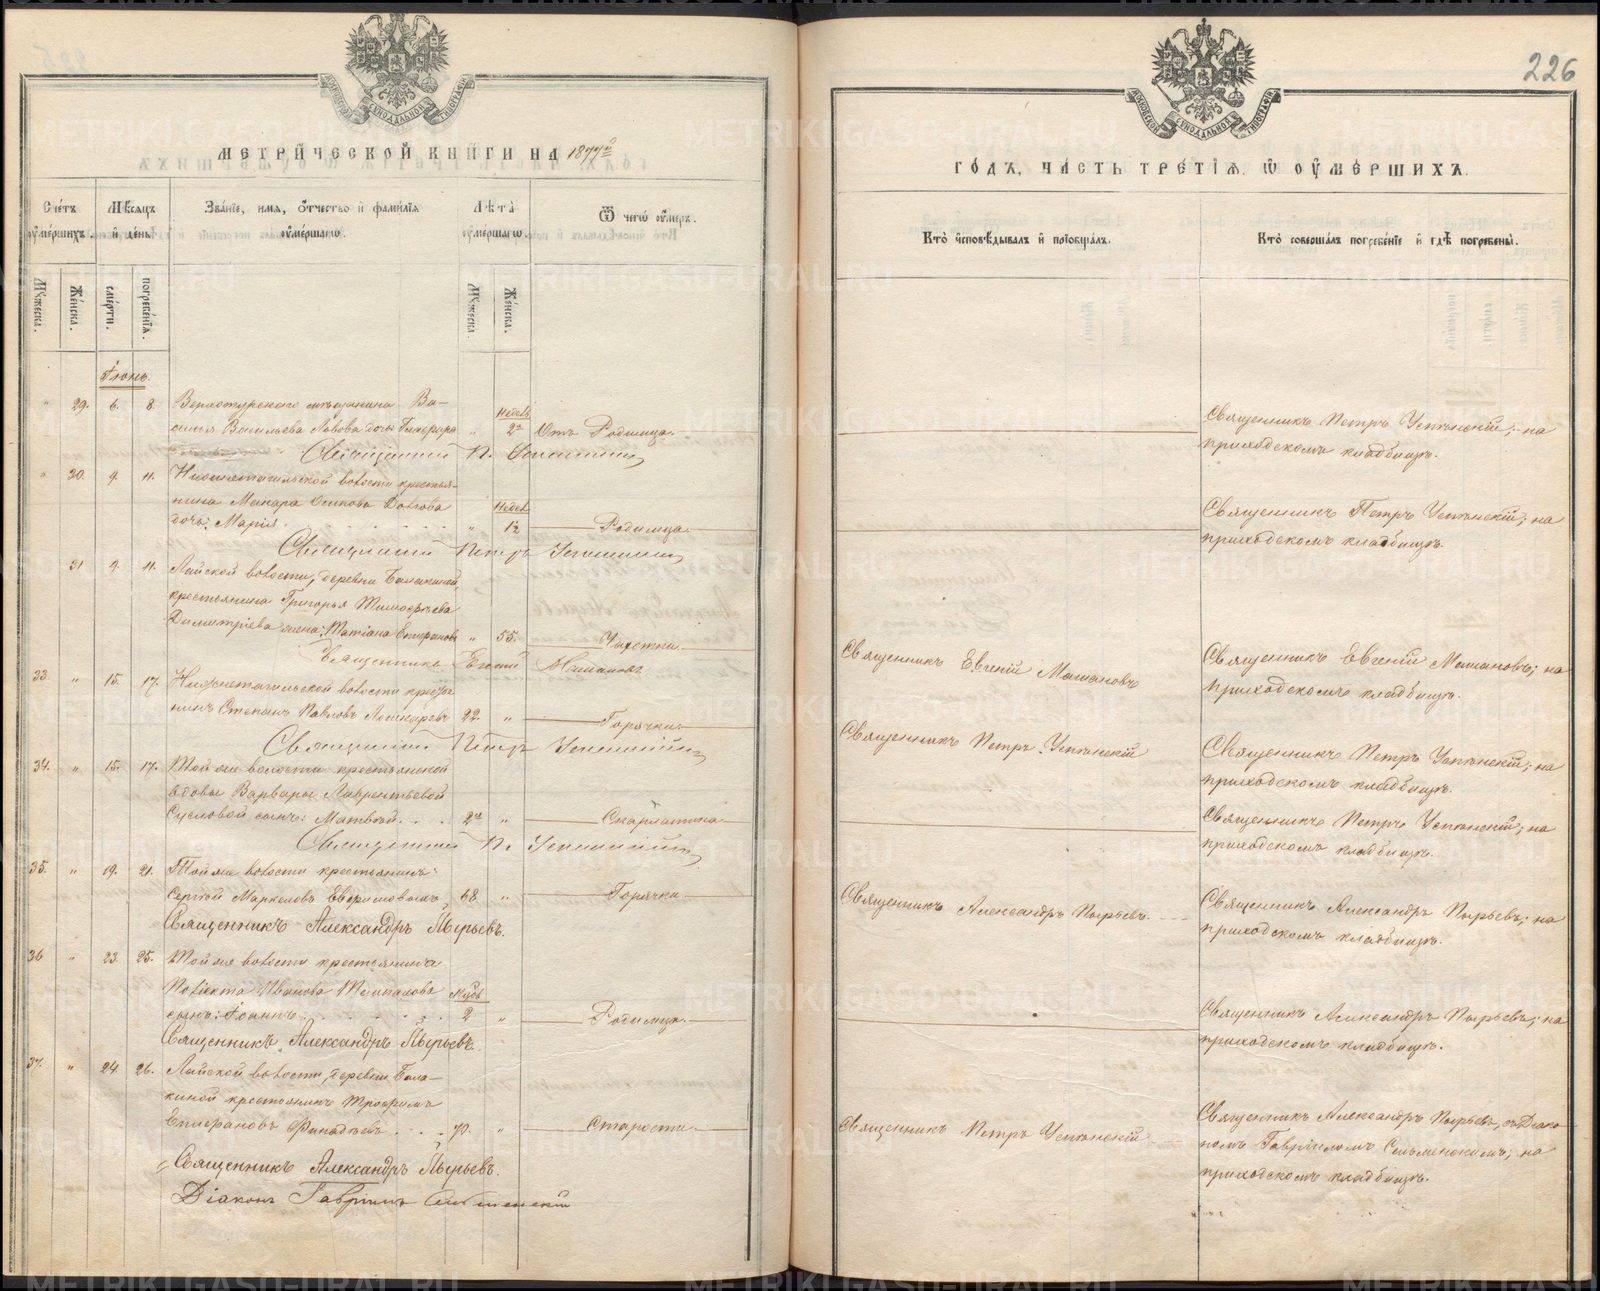 МЕТРИЧЕСКОЙ КНИГИ НА 1877й
Счетъ умершихъ.
Мѣсяцъ и день
Званіе, имя, отчество и фамилія умершагѡ.
Лѣта умершагѡ.
Ѿ чегѡ умеръ.
Мужеска.
Женска.
смерти.
погребенія.
Мужеска
Женска.
Іюнь.
" 29. 6. 8. Верхотурскаго мѣщанина Ва-
силья Васильева Львова дочь Гликерія " Недѣль 2. Отъ Родимца.
Священникъ П. Успенскій
" 30. 9. 11. Нижнетагильской волости крестья-
нина Макара Осипова Долгова
дочь: Марія. " Недѣл. 1½ Родимца.
Священникъ Петръ Успенскій
31 9. 11. Лайской волости, деревни Балакиной,
крестьянина Григорья Тимоѳѣева
Димитріева жена: Татіана Епифанова " 55. Чахотки.
Священникъ Евгеній
33. " 15. 17. Нижнетагильской волости кресть
нинъ Степанъ Павловъ 22. " Горячки.
Священникъ Петръ Успенскій
34. " 15. 17. Той же волости крестьянской
вдовы Варвары Лаврентьевой
Сусловой сынъ: Матвѣй. 2. " Скарлатина
Священникъ П. Успенскій
35. " 19. 21. Той же волости крестьянинъ:
Сергѣй Маркеловъ 68. " Горячка
Священникъ Александръ Пырьевъ.
36 " 23. 25. Той же волости крестьянина
Ивана
сынъ: Іоаннъ. 2 " Родимца.
Священникъ Александръ Пырьевъ.
37. " 24. 26. Лайской волости, деревни Бала-
киной крестьянинъ Трофимъ
Епифановъ 70. " Старости.
Священникъ Александръ Пырьевъ.
Діаконъ Гавріилъ
226
ГОДЪ, ЧАСТЬ ТРЕТІЯ, Ѡ УМЕРШИХЪ.
Кто исповѣдывалъ и пріобщалъ.
Кто совершалъ погребеніе и гдѣ погребены.
Священникъ Петръ Успенскій; на
приходскомъ кладбищѣ.
Священникъ Петръ Успенскій; на
приходскомъ кладбищѣ.
Священникъ Евгеній
Священникъ Евгеній на
приходскомъ кладбищѣ.
Священникъ Петръ Успенскій
Священникъ Петръ Успенскій; на
приходскомъ кладбищѣ.
Священникъ Петръ Успенскій; на
приходскомъ кладбищѣ.
Священникъ Александръ Пырьевъ.
Священникъ Александръ Пырьевъ; на
приходскомъ кладбищѣ.
Священникъ Александръ Пырьевъ; на
приходскомъ кладбищѣ.
Священникъ Петръ Успенскій
Священникъ Александръ Пырьевъ, съ Діако-
номъ Гавріиломъ на
приходскомъ кладбищѣ.
METRIKI.GASO-URAL.RU